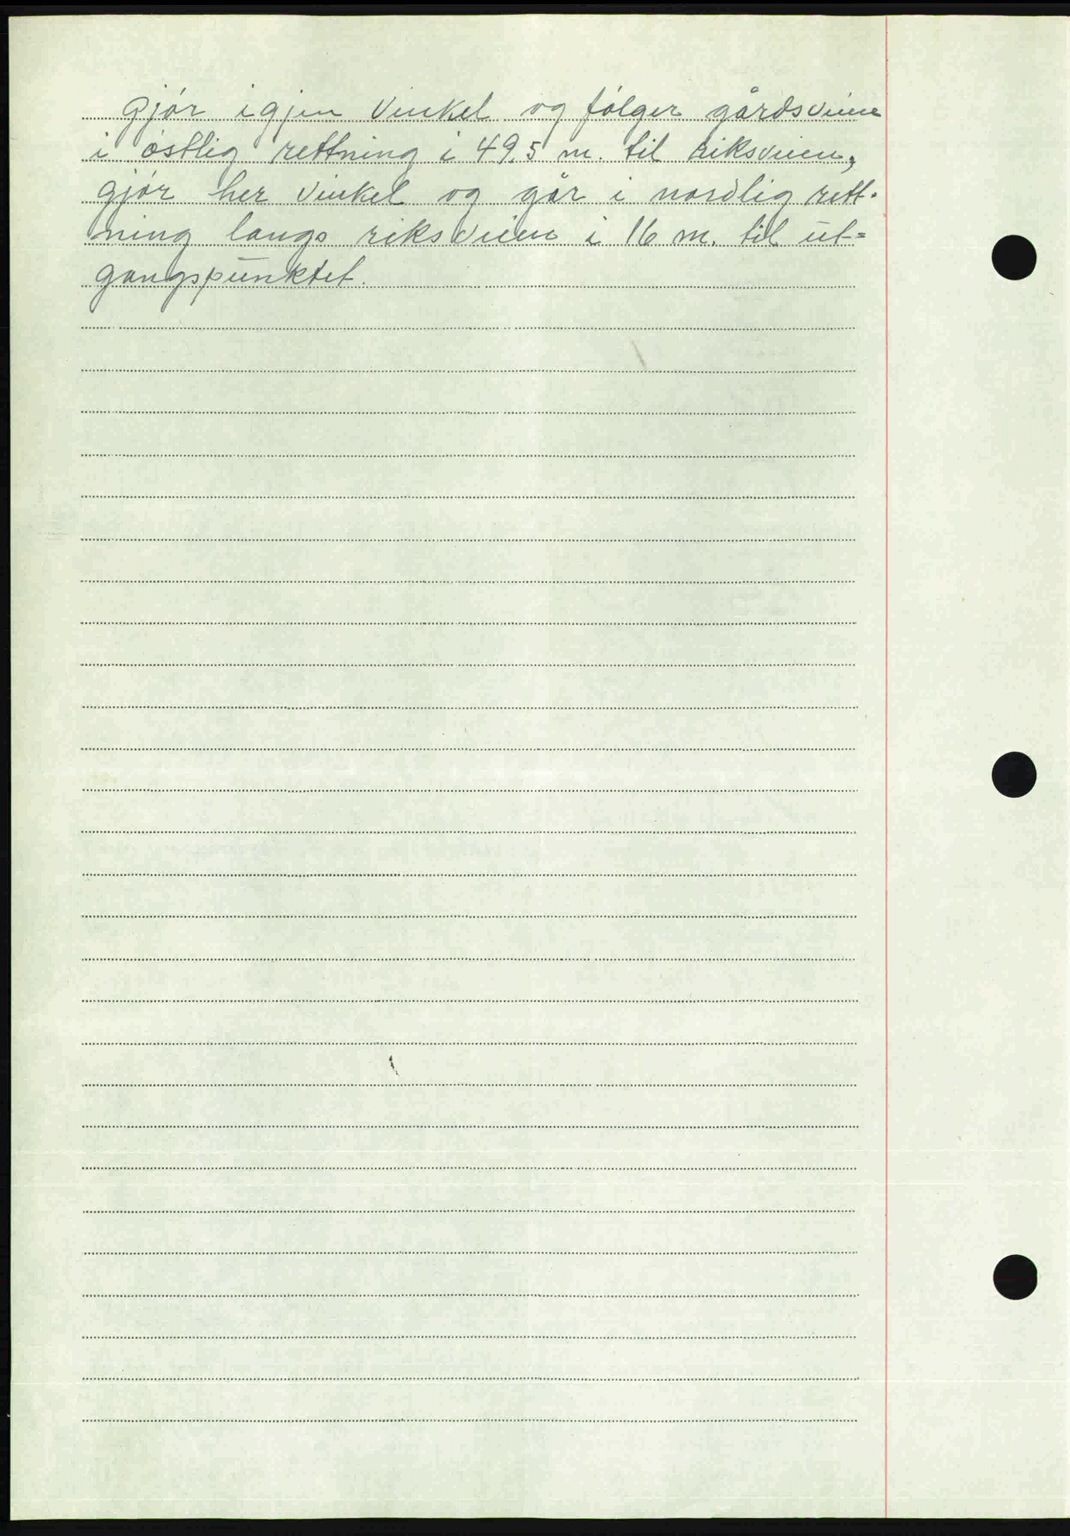 gjör igjen vinkel og fölger gårdsveien
i östlig rettning i 49,5 m. til riksveien,
gjör her vinkel og går i nordlig rett-
ning langs riksveien i 16 m. til ut=
gangspunktet.